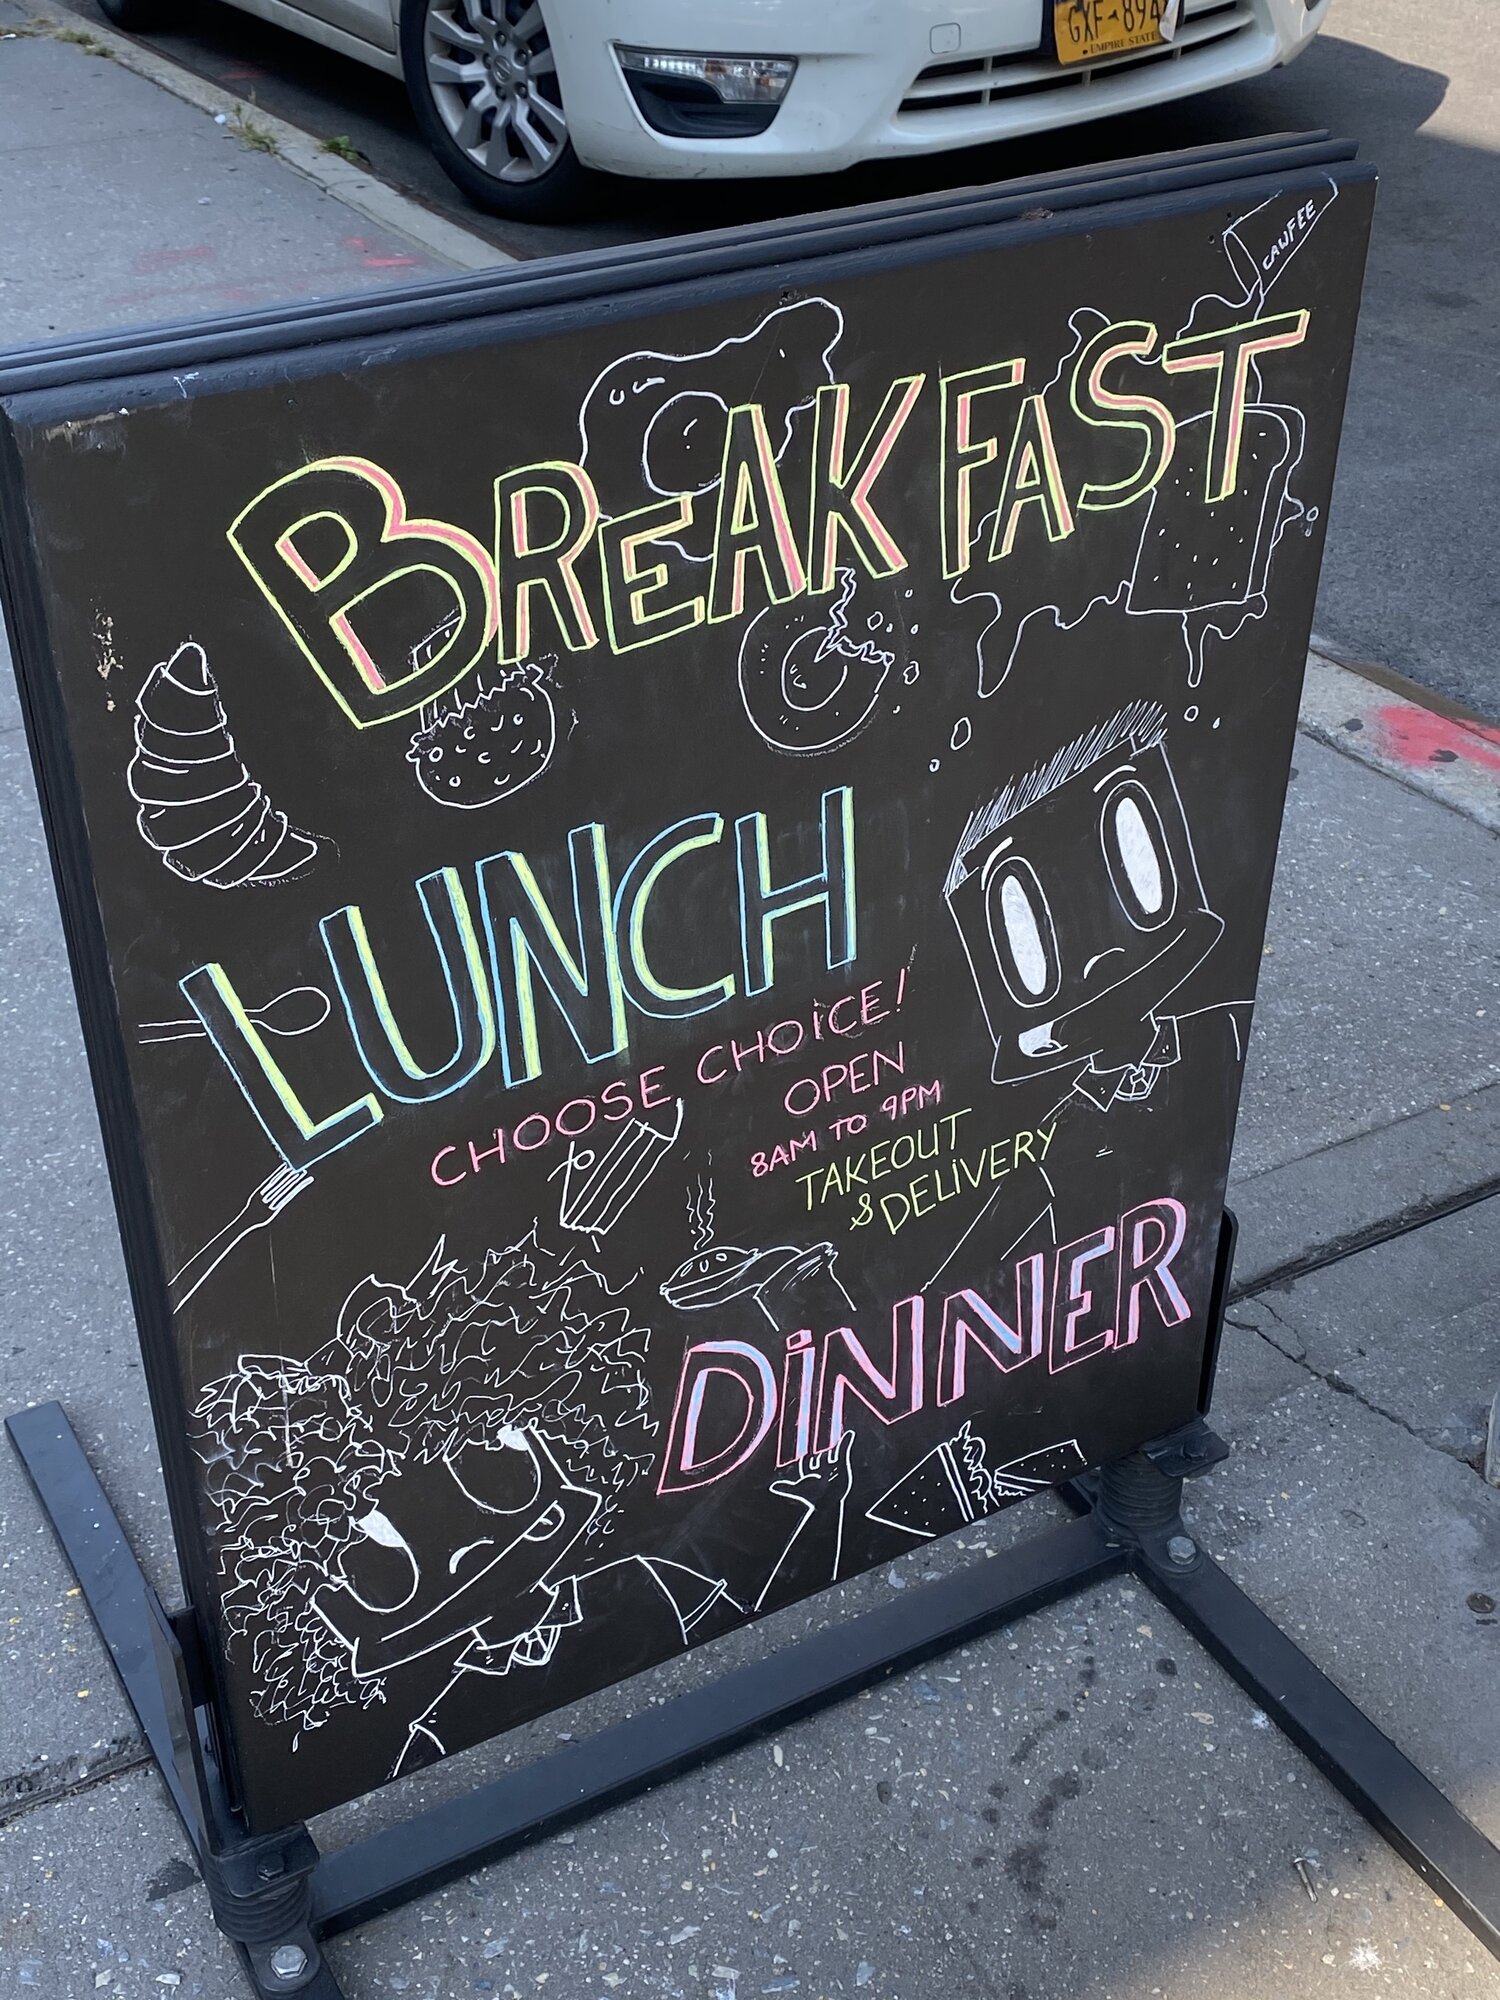 GXF-894
EMPIRE STATE
CAWFEE
BREAKFAST
LUNCH
CHOOSE CHOICE!
OPEN
8AM TO 9PM
TAKEOUT
& DELIVERY
DINNER